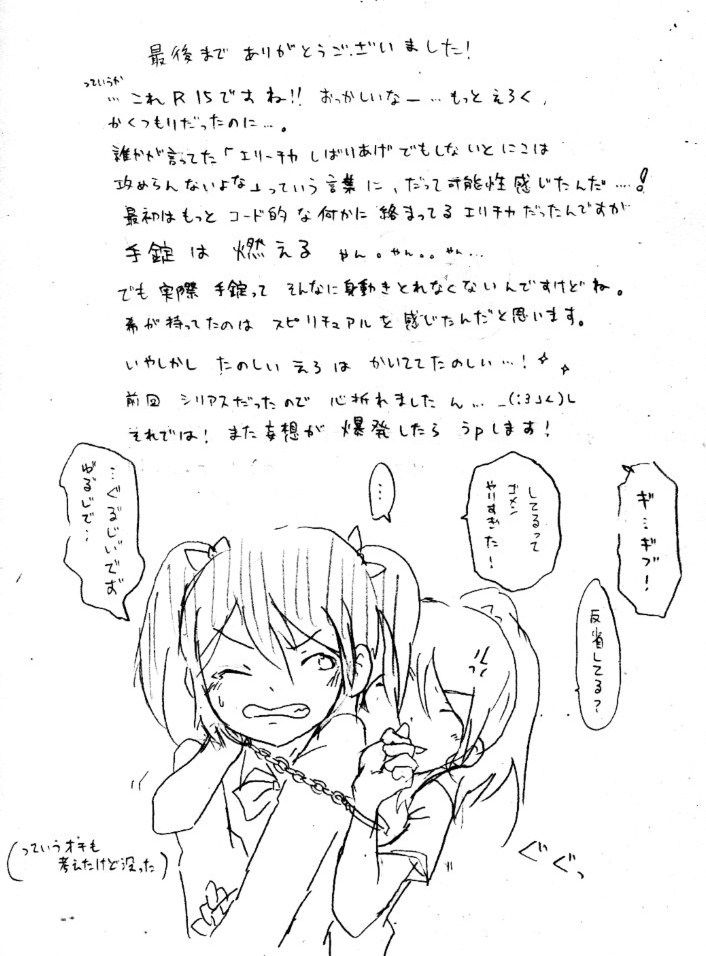 最後まで ありがとうございました!
っていうか
… これR15ですね!! おっかしいなー … もっと えろく、
かくつもりだったのに…。
誰かが言ってた「エリーチカ しばりあげでもしないと にこは
攻めらんないよな」っていう言葉に、だって可能性感じたんだ……!
最初はもっと コード的な何かに 絡まってる エリチカだったんですが
手錠は 燃える ゃん。ゃん。。ゃん…
でも実際 手錠って そんなに身動きとれなくないんですけどね。
希が持ってたのは スピリチュアルを感じたんだと思います。
いやしかし たのしい えろは かいててたのしい…!
前回 シリアスだったので 心折れました ん… _(:3」く)し
それでは! また妄想が 爆発したら うpします!
ギ…ギブ!
反省してる?
してるって
ゴメン
やりすぎた!
…
…ぐるじいでず
ゆるじで…
ぐぐっ
(っていうオチも
考えたけど没った)